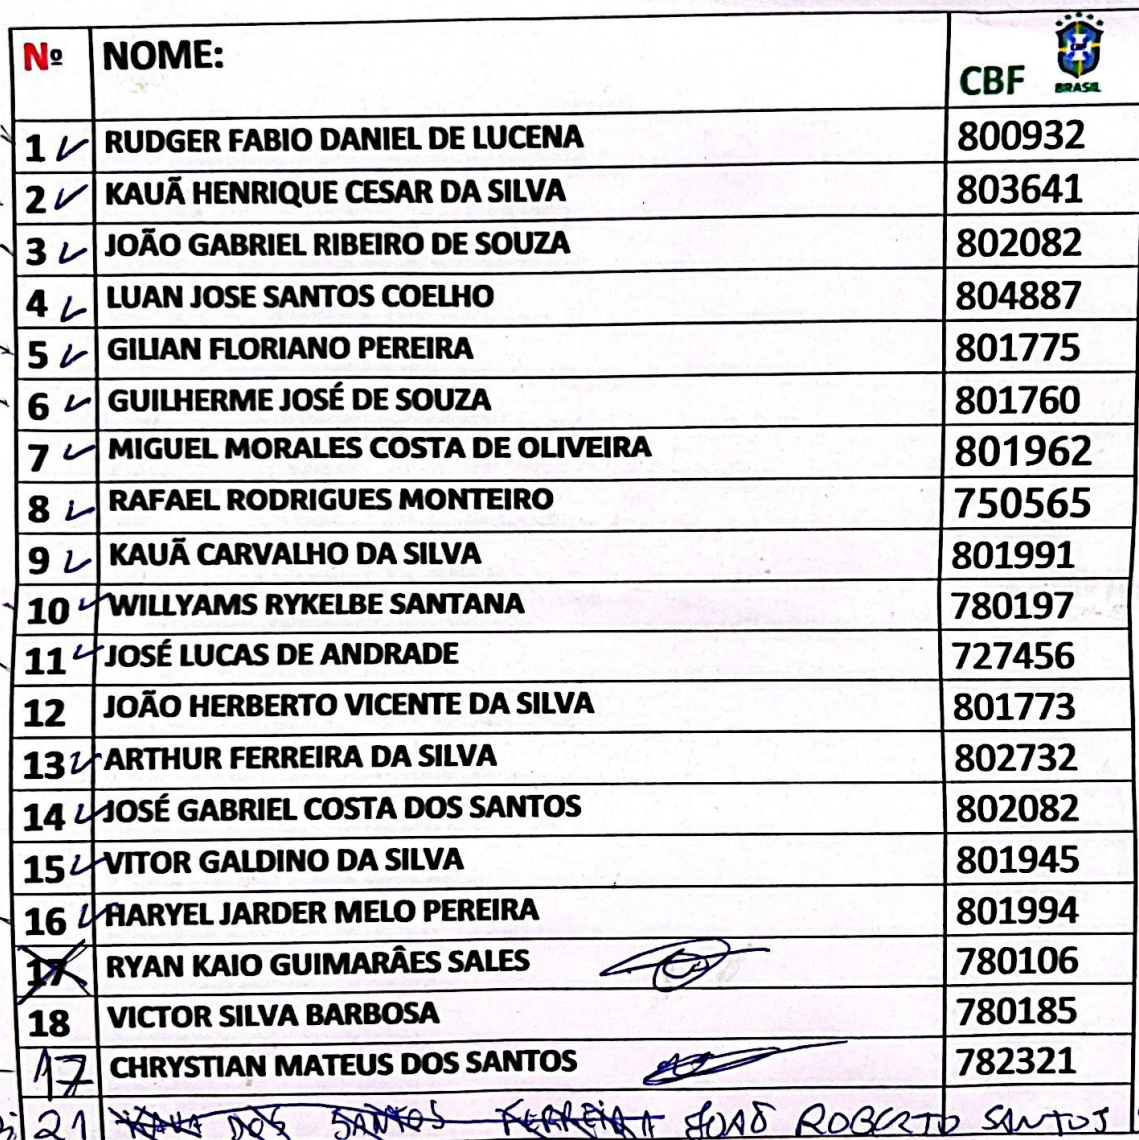 Nº NOME: CBF BRASIL
1 RUDGER FABIO DANIEL DE LUCENA 800932
2 KAUÃ HENRIQUE CESAR DA SILVA 803641
3 JOÃO GABRIEL RIBEIRO DE SOUZA 802082
4 LUAN JOSE SANTOS COELHO 804887
5 GILIAN FLORIANO PEREIRA 801775
6 GUILHERME JOSÉ DE SOUZA 801760
7 MIGUEL MORALES COSTA DE OLIVEIRA 801962
8 RAFAEL RODRIGUES MONTEIRO 750565
9 KAUÃ CARVALHO DA SILVA 801991
10 WILLYAMS RYKELBE SANTANA 780197
11 JOSÉ LUCAS DE ANDRADE 727456
12 JOÃO HERBERTO VICENTE DA SILVA 801773
13 ARTHUR FERREIRA DA SILVA 802732
14 JOSÉ GABRIEL COSTA DOS SANTOS 802082
15 VITOR GALDINO DA SILVA 801945
16 HARYEL JARDER MELO PEREIRA 801994
17 RYAN KAIO GUIMARÂES SALES 780106
18 VICTOR SILVA BARBOSA 780185
17 CHRYSTIAN MATEUS DOS SANTOS 782321
21 DOS SANTOS FERREIRA JOAO ROBERTO SANTOS